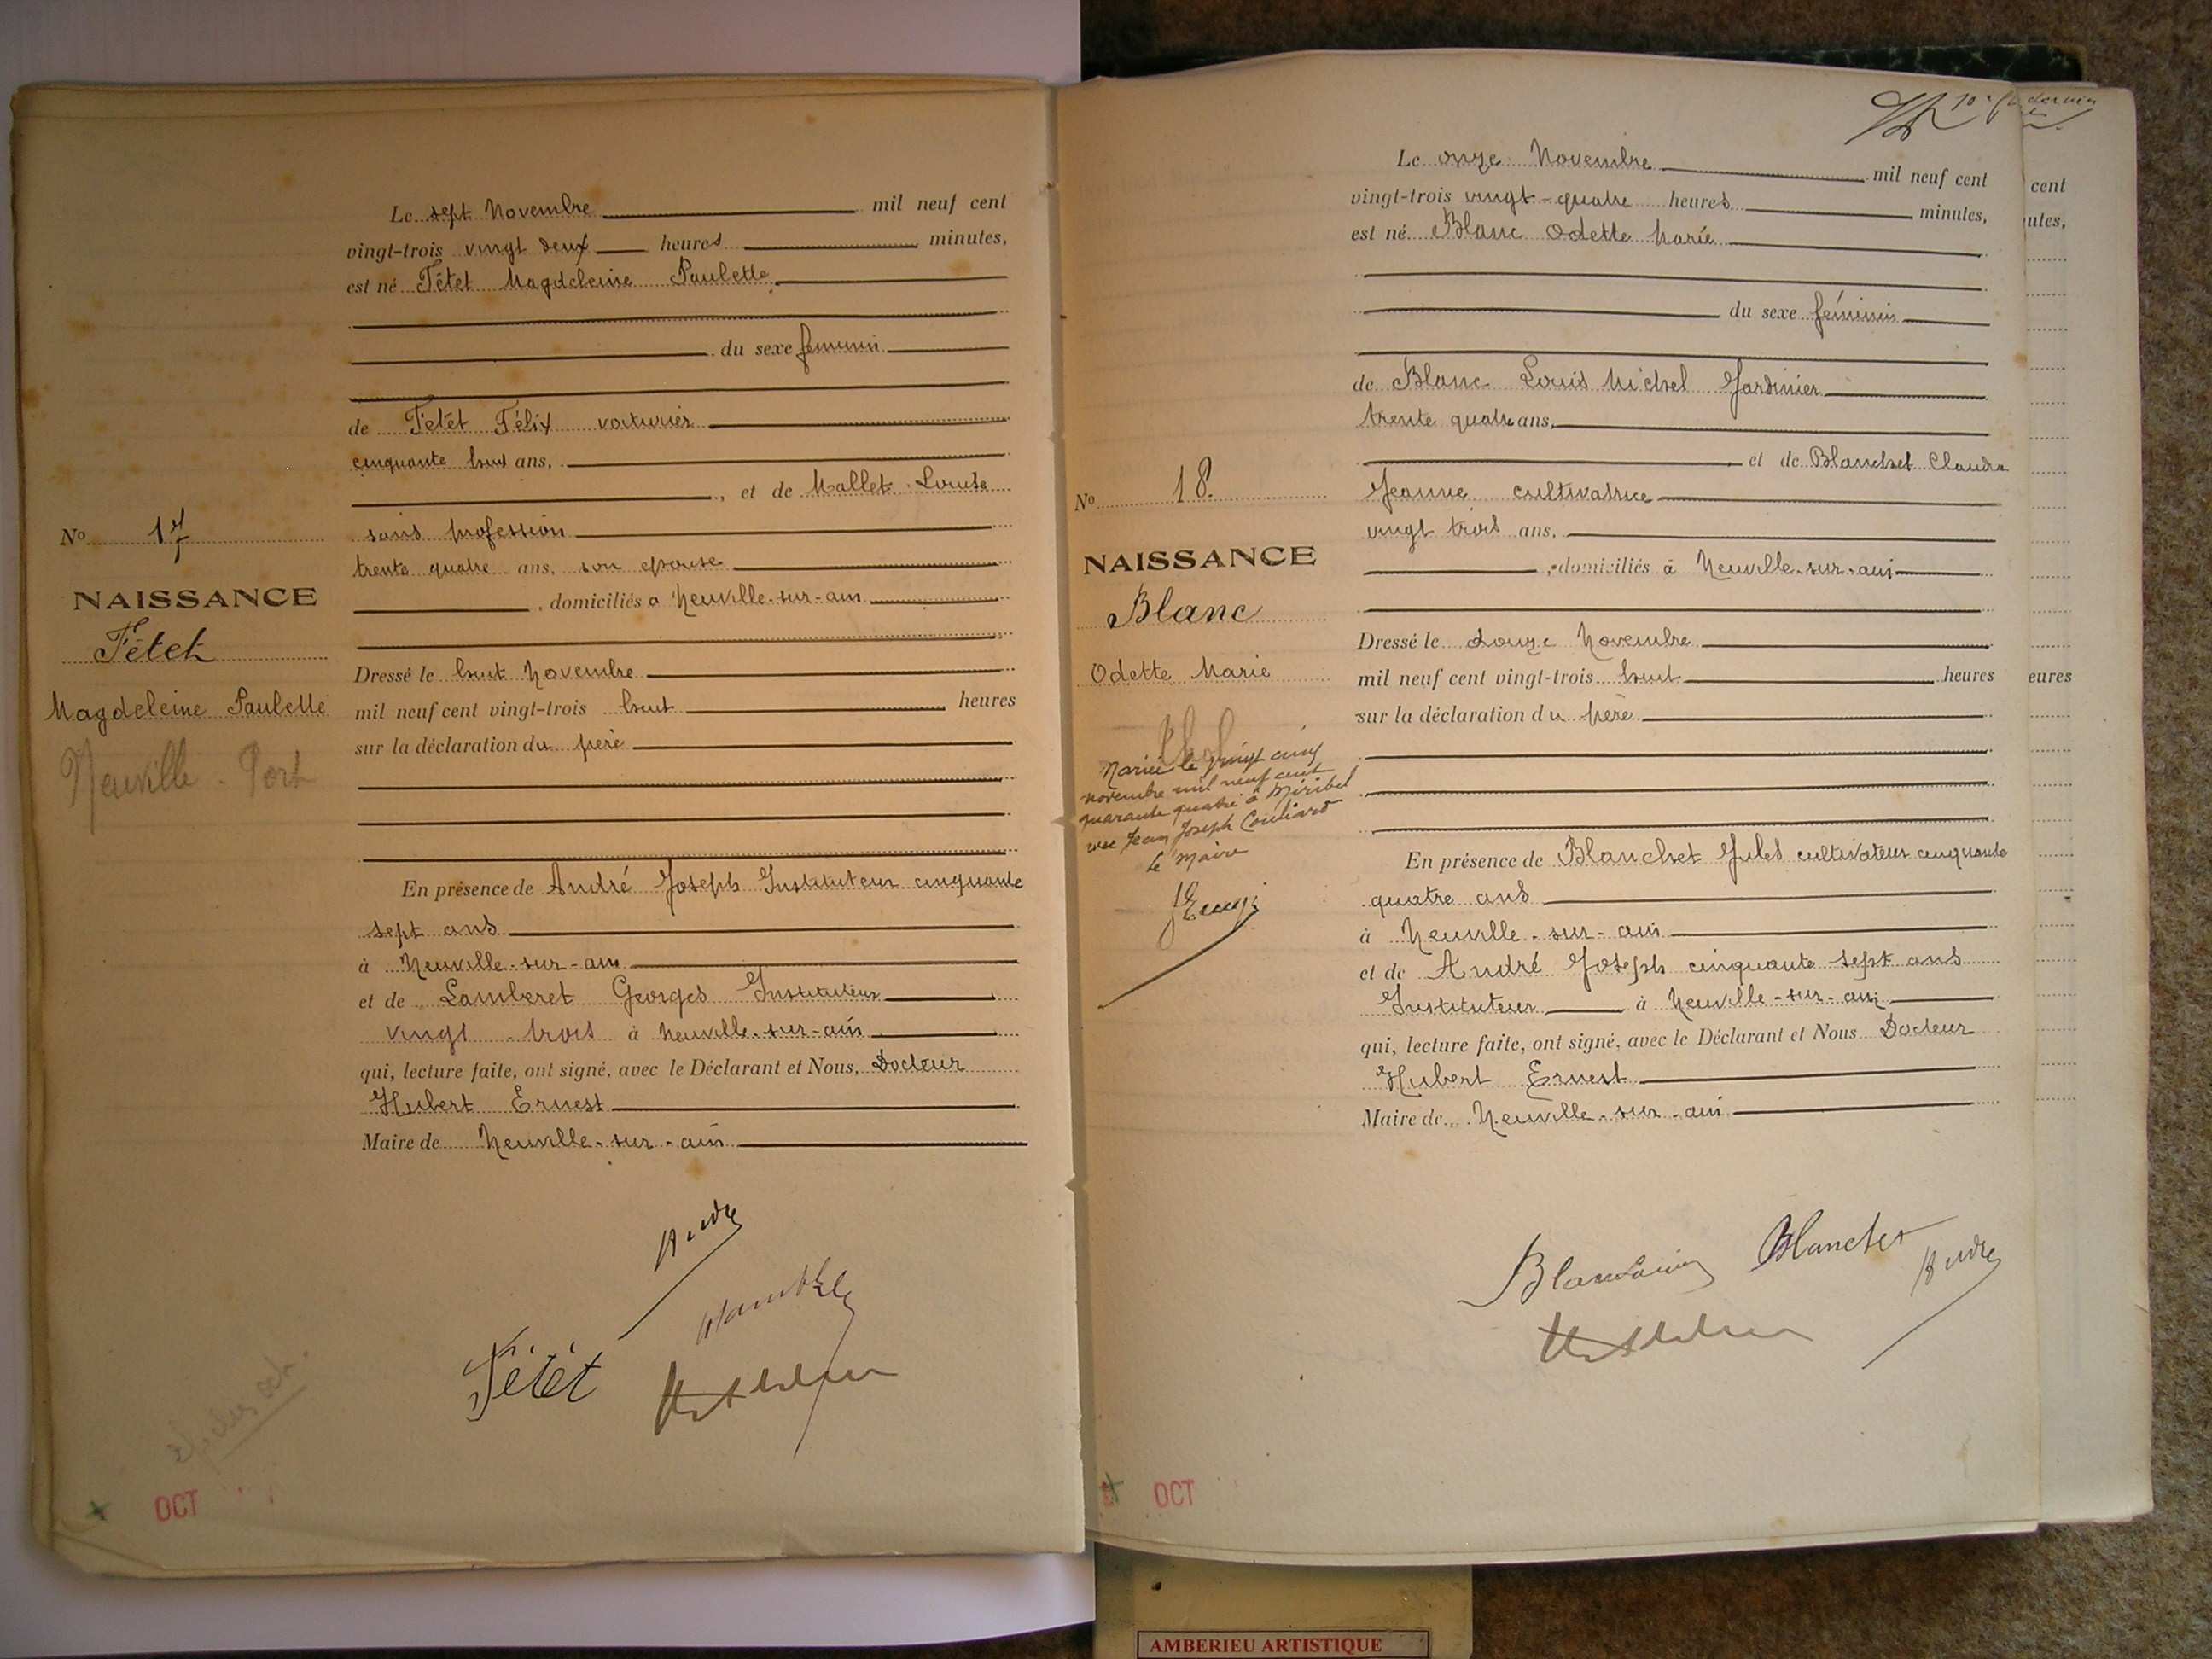 Le sept Novembre mil neuf cent
vingt-trois vingt deux heures minutes,
est né Fétet Magdeleine Paulette
du sexe féminin
de Fétet Félix voiturier
cinquante huit ans,
, et de Mallet Louise
sans profession
trente quatre ans, son epouse
, domiciliés a Neuville-sur-ain
Dressé le huit Novembre
mil neuf cent vingt-trois huit heures
sur la déclaration du père
En présence de André Joseph Instituteur cinquante
sept ans
à Neuville-sur-ain
et de Lamberet Georges Instituteur
vingt trois à Neuville-sur-ain
qui, lecture faite, ont signé, avec le Déclarant et Nous, Docteur
Hubert Ernest
Maire de Neuville-sur-ain
No 17
NAISSANCE
Fétet
Magdeleine Paulette
Neuville - Port
André
Fétet
OCT
Le onze Novembre mil neuf cent
vingt-trois vingt-quatre heures minutes,
est né Blanc Odette Marie
du sexe féminin
de Blanc Louis Michel Jardinier
trente quatre ans,
et de Blanchet Claudia
Jeanne cultivatrice
vingt trois ans,
, domiciliés à Neuville-sur-ain
Dressé le douze Novembre
mil neuf cent vingt-trois huit heures
sur la déclaration du père
En présence de Blanchet Jules cultivateur cinquante
quatre ans
à Neuville-sur-ain
et de André Joseph cinquante sept ans
Instituteur à Neuville-sur-ain
qui, lecture faite, ont signé, avec le Déclarant et Nous Docteur
Hubert Ernest
Maire de Neuville-sur-ain
No 18
NAISSANCE
Blanc
Odette Marie
Mariée le vingt cinq
novembre mil neuf cent
quarante quatre à Miribel
avec Jean Joseph
le Maire
Blanchet
André
OCT
cent
utes,
eures
AMBERIEU ARTISTIQUE